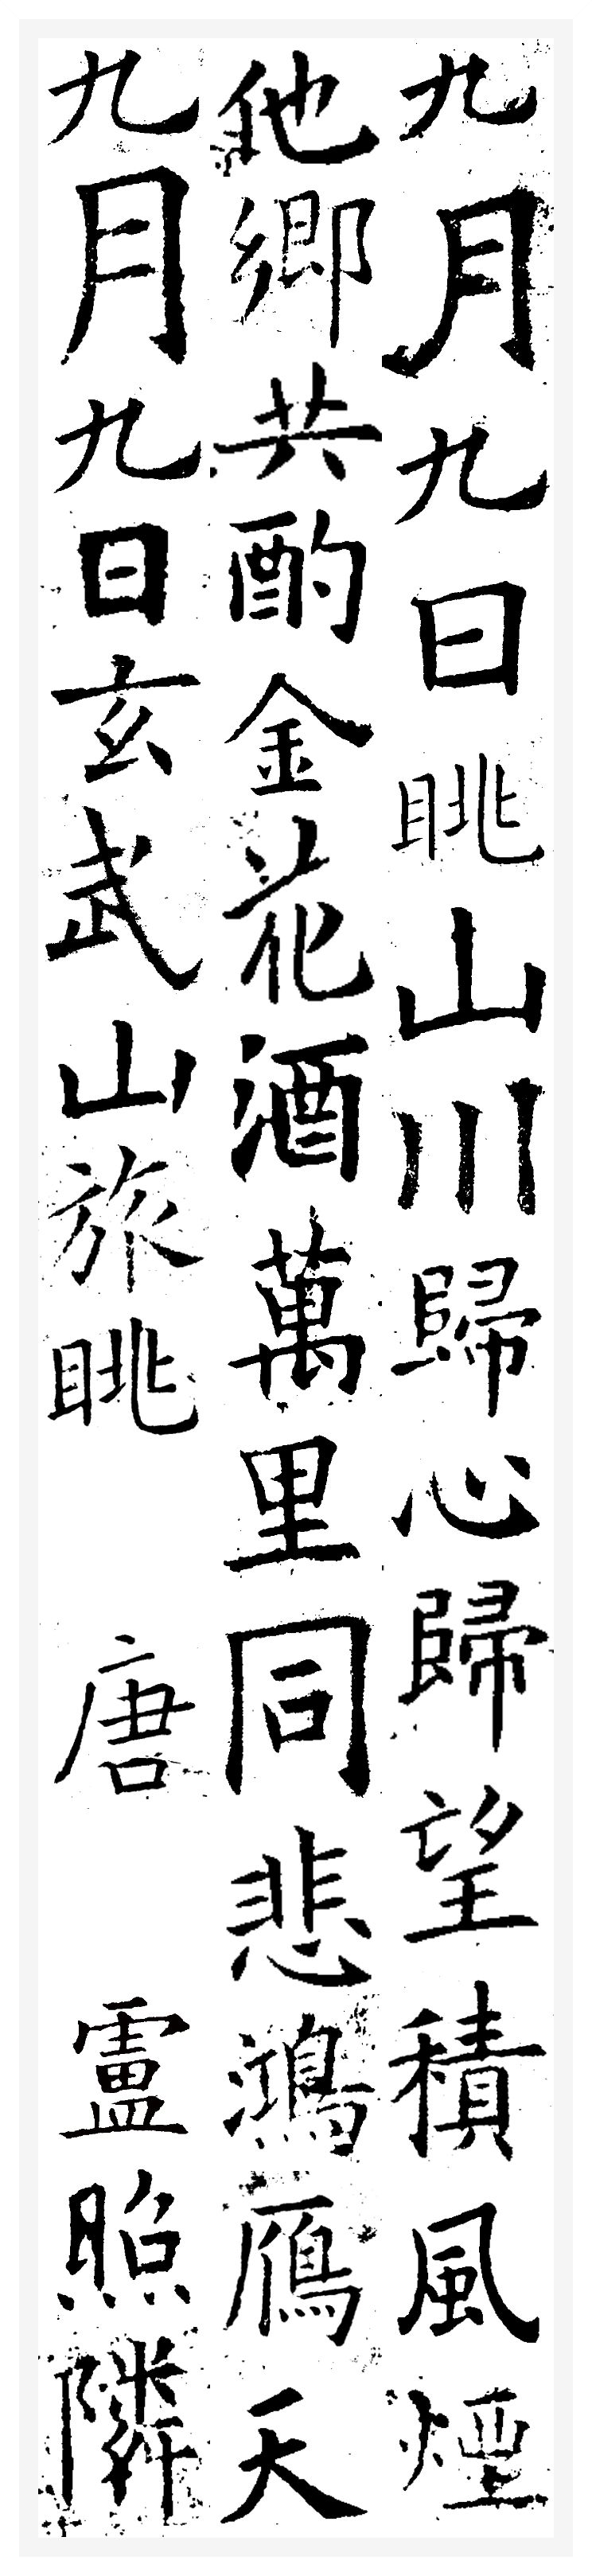 九月九日眺山川歸心歸望積風煙
他鄉共酌金花酒萬里同悲鴻鴈天
九月九日玄武山旅眺 唐 盧照隣